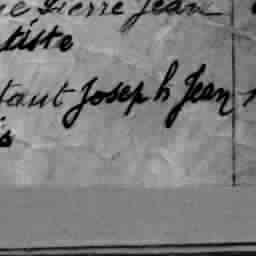 Pierre Jean
tiste
taut Joseph Jean
is